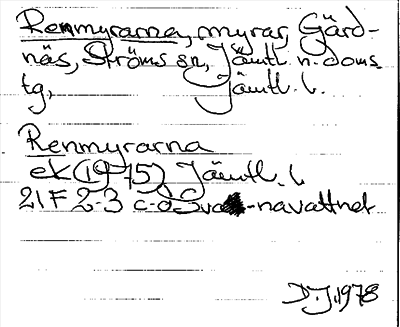 Renmyrarna, myrar, Gärd-
näs, Ströms sn, Jämtl. n. doms.
tg, Jämtl. l.
Renmyrarna
ek (1975) Jämtl. l
21F 2-3 c-d Sva-navattnet
D.J. 1978